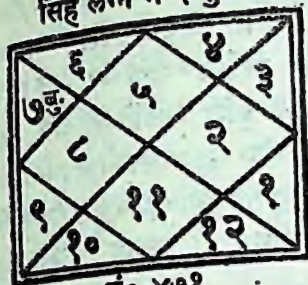 सिंह लग्न
६ ४
७बु. ५ ३
८ २
९ ११ १
१० १२